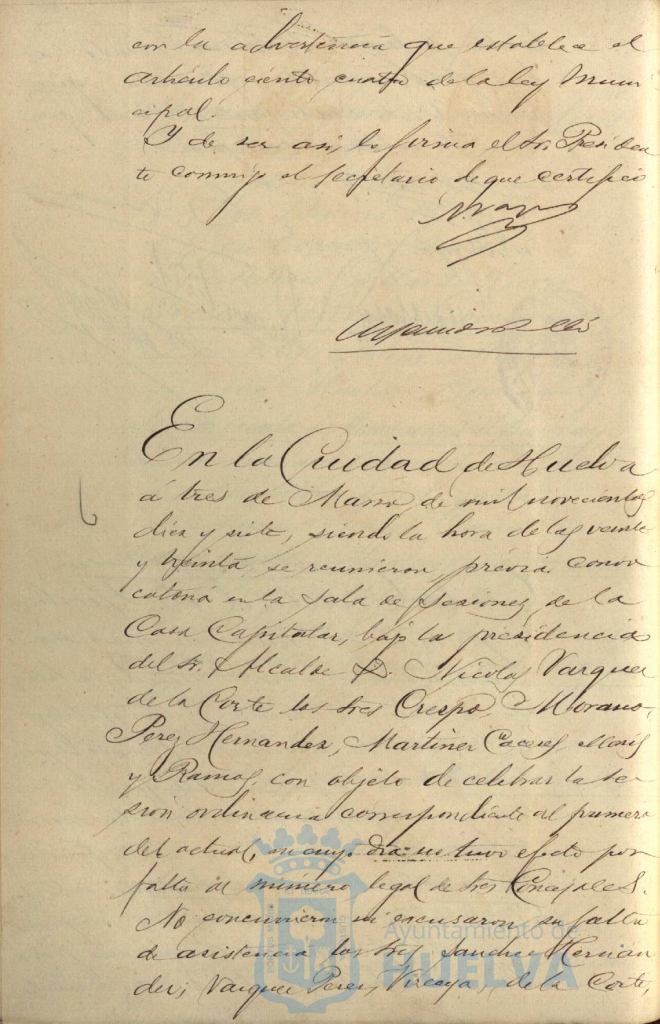 con la advertencia que establece el
artículo ciento cuatro de la ley Muni
cipal.
Y de ser así, lo firma el Sr. Presiden
te conmigo el secretario de que certifico
En la Ciudad de Huelva
á tres de Marzo de mil novecientos
diez y siete, siendo la hora de las veinte
y treinta se reunieron prévia convo
catoria en la Sala de Sesiones de la
Casa Capitular, bajo la presidencia
del Sr. Alcalde D. Nicolas Vazquez
de la Corte los Sres Crespo, Morano,
Perez Hernandez, Martinez Caceres,
y Ramos, con objeto de celebrar la se
sion ordinaria correspondiente al primero
del actual, en cuyo dia no tuvo efecto por
falta de número legal de Sres Concejales.
No concurrieron ni escusaron su falta
de asistencia los Sres Sanchez Hernan
dez, Vazquez Perez, Vizcaya, de la Corte,
Ayuntamiento de
HUELVA